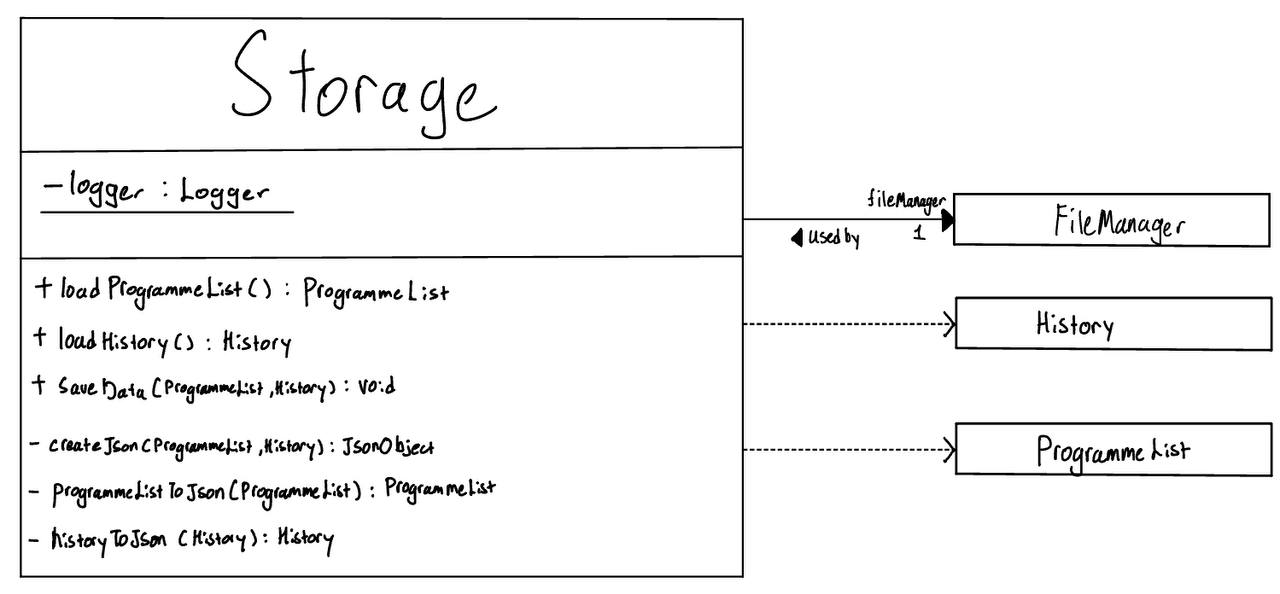 Storage
-logger : Logger
+ loadProgrammeList() : ProgrammeList
+ loadHistory() : History
+ SaveData(ProgrammeList, History) : void
- createJson(ProgrammeList, History) : JsonObject
- programmeListToJson(ProgrammeList) : ProgrammeList
- historyToJson (History) : History
fileManager
◀ Used by 1
FileManager
History
ProgrammeList